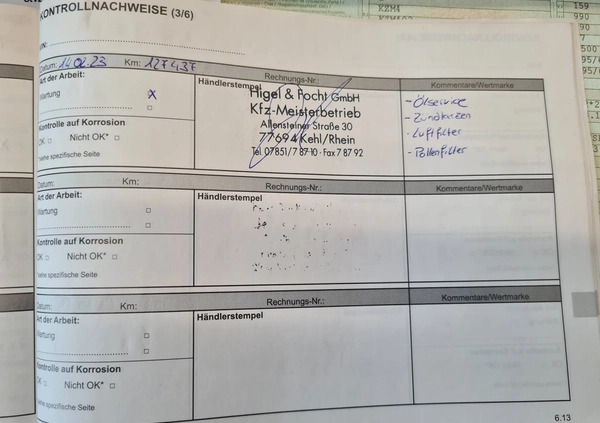 KONTROLLNACHWEISE (3/6)
VIN:
Datum: 14.02.23 Km: 127437
Rechnungs-Nr.:
Kommentare/Wertmarke
Art der Arbeit:
Wartung X
Händlerstempel
Higel & Focht GmbH
Kfz-Meisterbetrieb
Allensteiner Straße 30
77694 Kehl/Rhein
Tel. 07851/7 87 10 · Fax 7 87 92
- Ölservice
- Zündkerzen
- Luftfilter
- Pollenfilter
Kontrolle auf Korrosion
OK □ Nicht OK* □
*siehe spezifische Seite
Datum: Km:
Rechnungs-Nr.:
Kommentare/Wertmarke
Art der Arbeit:
Wartung □
□
Händlerstempel
Kontrolle auf Korrosion
OK □ Nicht OK* □
*siehe spezifische Seite
Datum: Km:
Rechnungs-Nr.:
Kommentare/Wertmarke
Art der Arbeit:
Wartung □
□
Händlerstempel
Kontrolle auf Korrosion
OK □ Nicht OK* □
*siehe spezifische Seite
6.13
KZM4
159